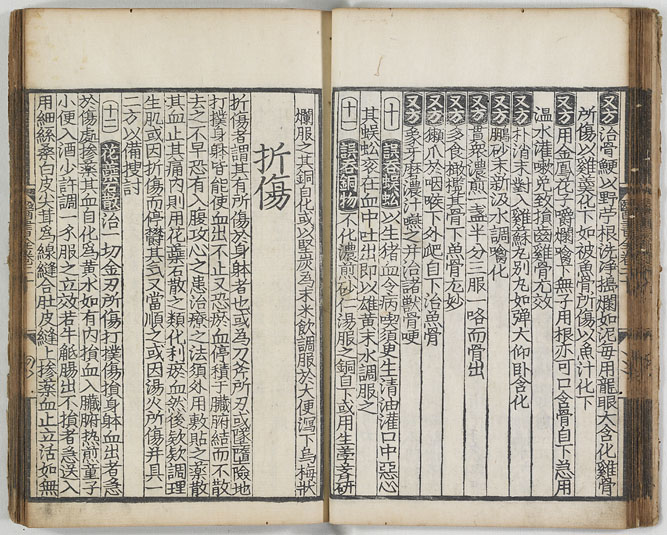 又方 治骨鯁以野苧根洗淨搗爛如泥每用龍眼大含化雞骨
所傷以雞羹化下如被魚骨所傷以魚汁化下
又方 用金鳳花子嚼爛嚥下無子用根亦可口含骨自下急用
溫水灌嗽免致損齒雞骨尤效
又方 朴消末對入雞蘇丸別丸如弹大仰卧含化
又方 鵬砂末新汲水調嚥化
又方 貫衆濃煎一盞半分三服一咯而骨出
又方 多食橄欖其骨下魚骨尤妙
又方 獺爪於咽喉下外爬自下治魚骨
又方 象牙磨濃汁嚥之并治諸獸骨哽
十 誤吞蜈蚣 以生猪血令病喫須更生清油灌口中惡心
其蜈蚣衮在血中吐出即以雄黄末水調服之
十一 誤吞銅物 不化濃煎砂湯服之銅自下或用生荸薺研
爛服之其銅自化或以堅炭為末米飲調服於大便瀉下烏梅狀
折傷
折傷者謂其有所傷於身躰者也或為刀斧所刃或墜墮險地
打撲身躰皆能使血出不止又恐瘀血停積于臟腑結而不散
去之不早恐有入腹攻心之患治療之法須外用敷貼之藥散
其血止其痛内則用花蘂石散之類化利瘀血然後欵欵調理
生肌或因折傷而停欝其氣又當順之或因湯火所傷并具一
二方以備搜討
十二 花蘂石散 治一切金刃所傷打撲傷損身躰血出者急
於傷處摻藥其血自化為黄水如有内損血入臟腑熱煎童子
小便入酒少許調一錢服之立效若牛觝腸出不損者急送入
用細絲桑白皮尖茸為線縫合肚皮縫上摻藥血止立活如無